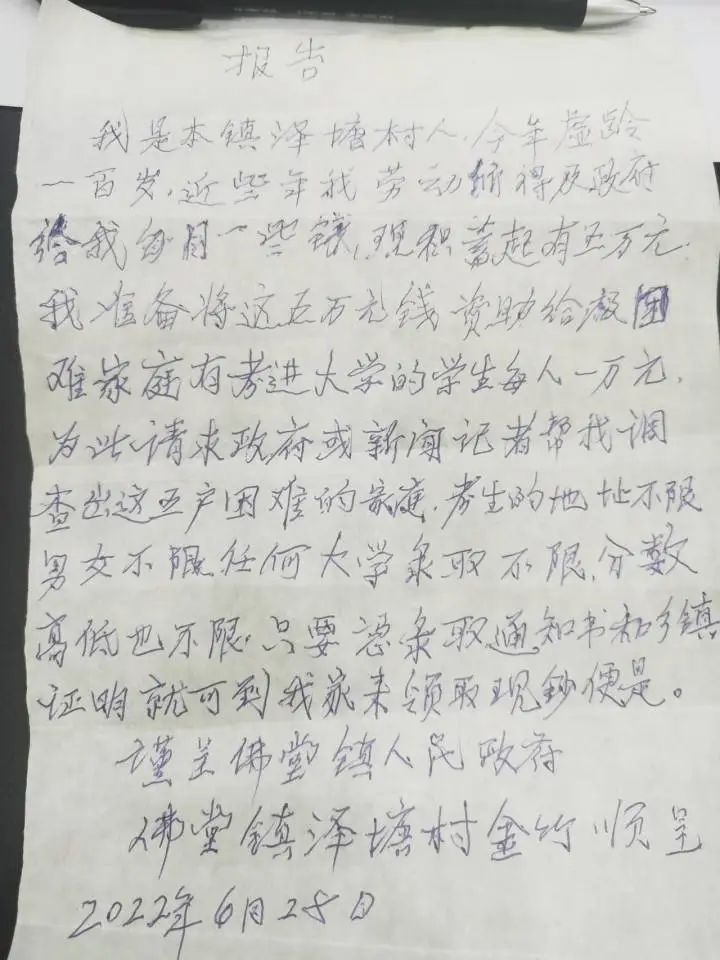 报告
我是本镇泽塘村人，今年虚龄
一百岁，近些年我劳动所得及政府
给我每月一些钱，现积蓄起有五万元，
我准备将这五万元钱资助给困
难家庭有考进大学的学生每人一万元，
为此请求政府或新闻记者帮我调
查出这五户困难的家庭，考生的地址不限
男女不限任何大学录取不限，分数
高低也不限，只要凭录取通知书和乡镇
证明就可到我家来领取现钞便是。
谨呈佛堂镇人民政府
佛堂镇泽塘村金竹顺呈
2022年6月28日